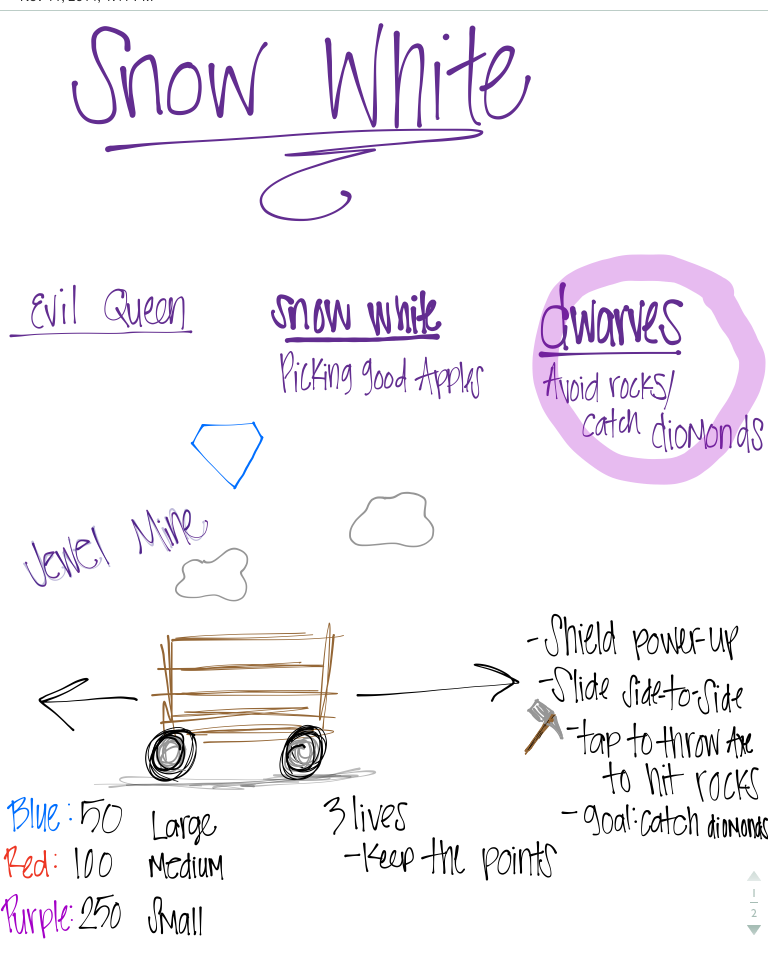 Snow White
Evil Queen
Snow white
Picking good Apples
dwarves
Avoid rocks/
catch diomonds
Jewel Mine
-Shield power-up
-Slide side-to-side
-tap to throw Axe
to hit rocks
-goal: catch diomonds
Blue: 50 Large
Red: 100 Medium
Purple: 250 Small
3 lives
-Keep the points
1
2